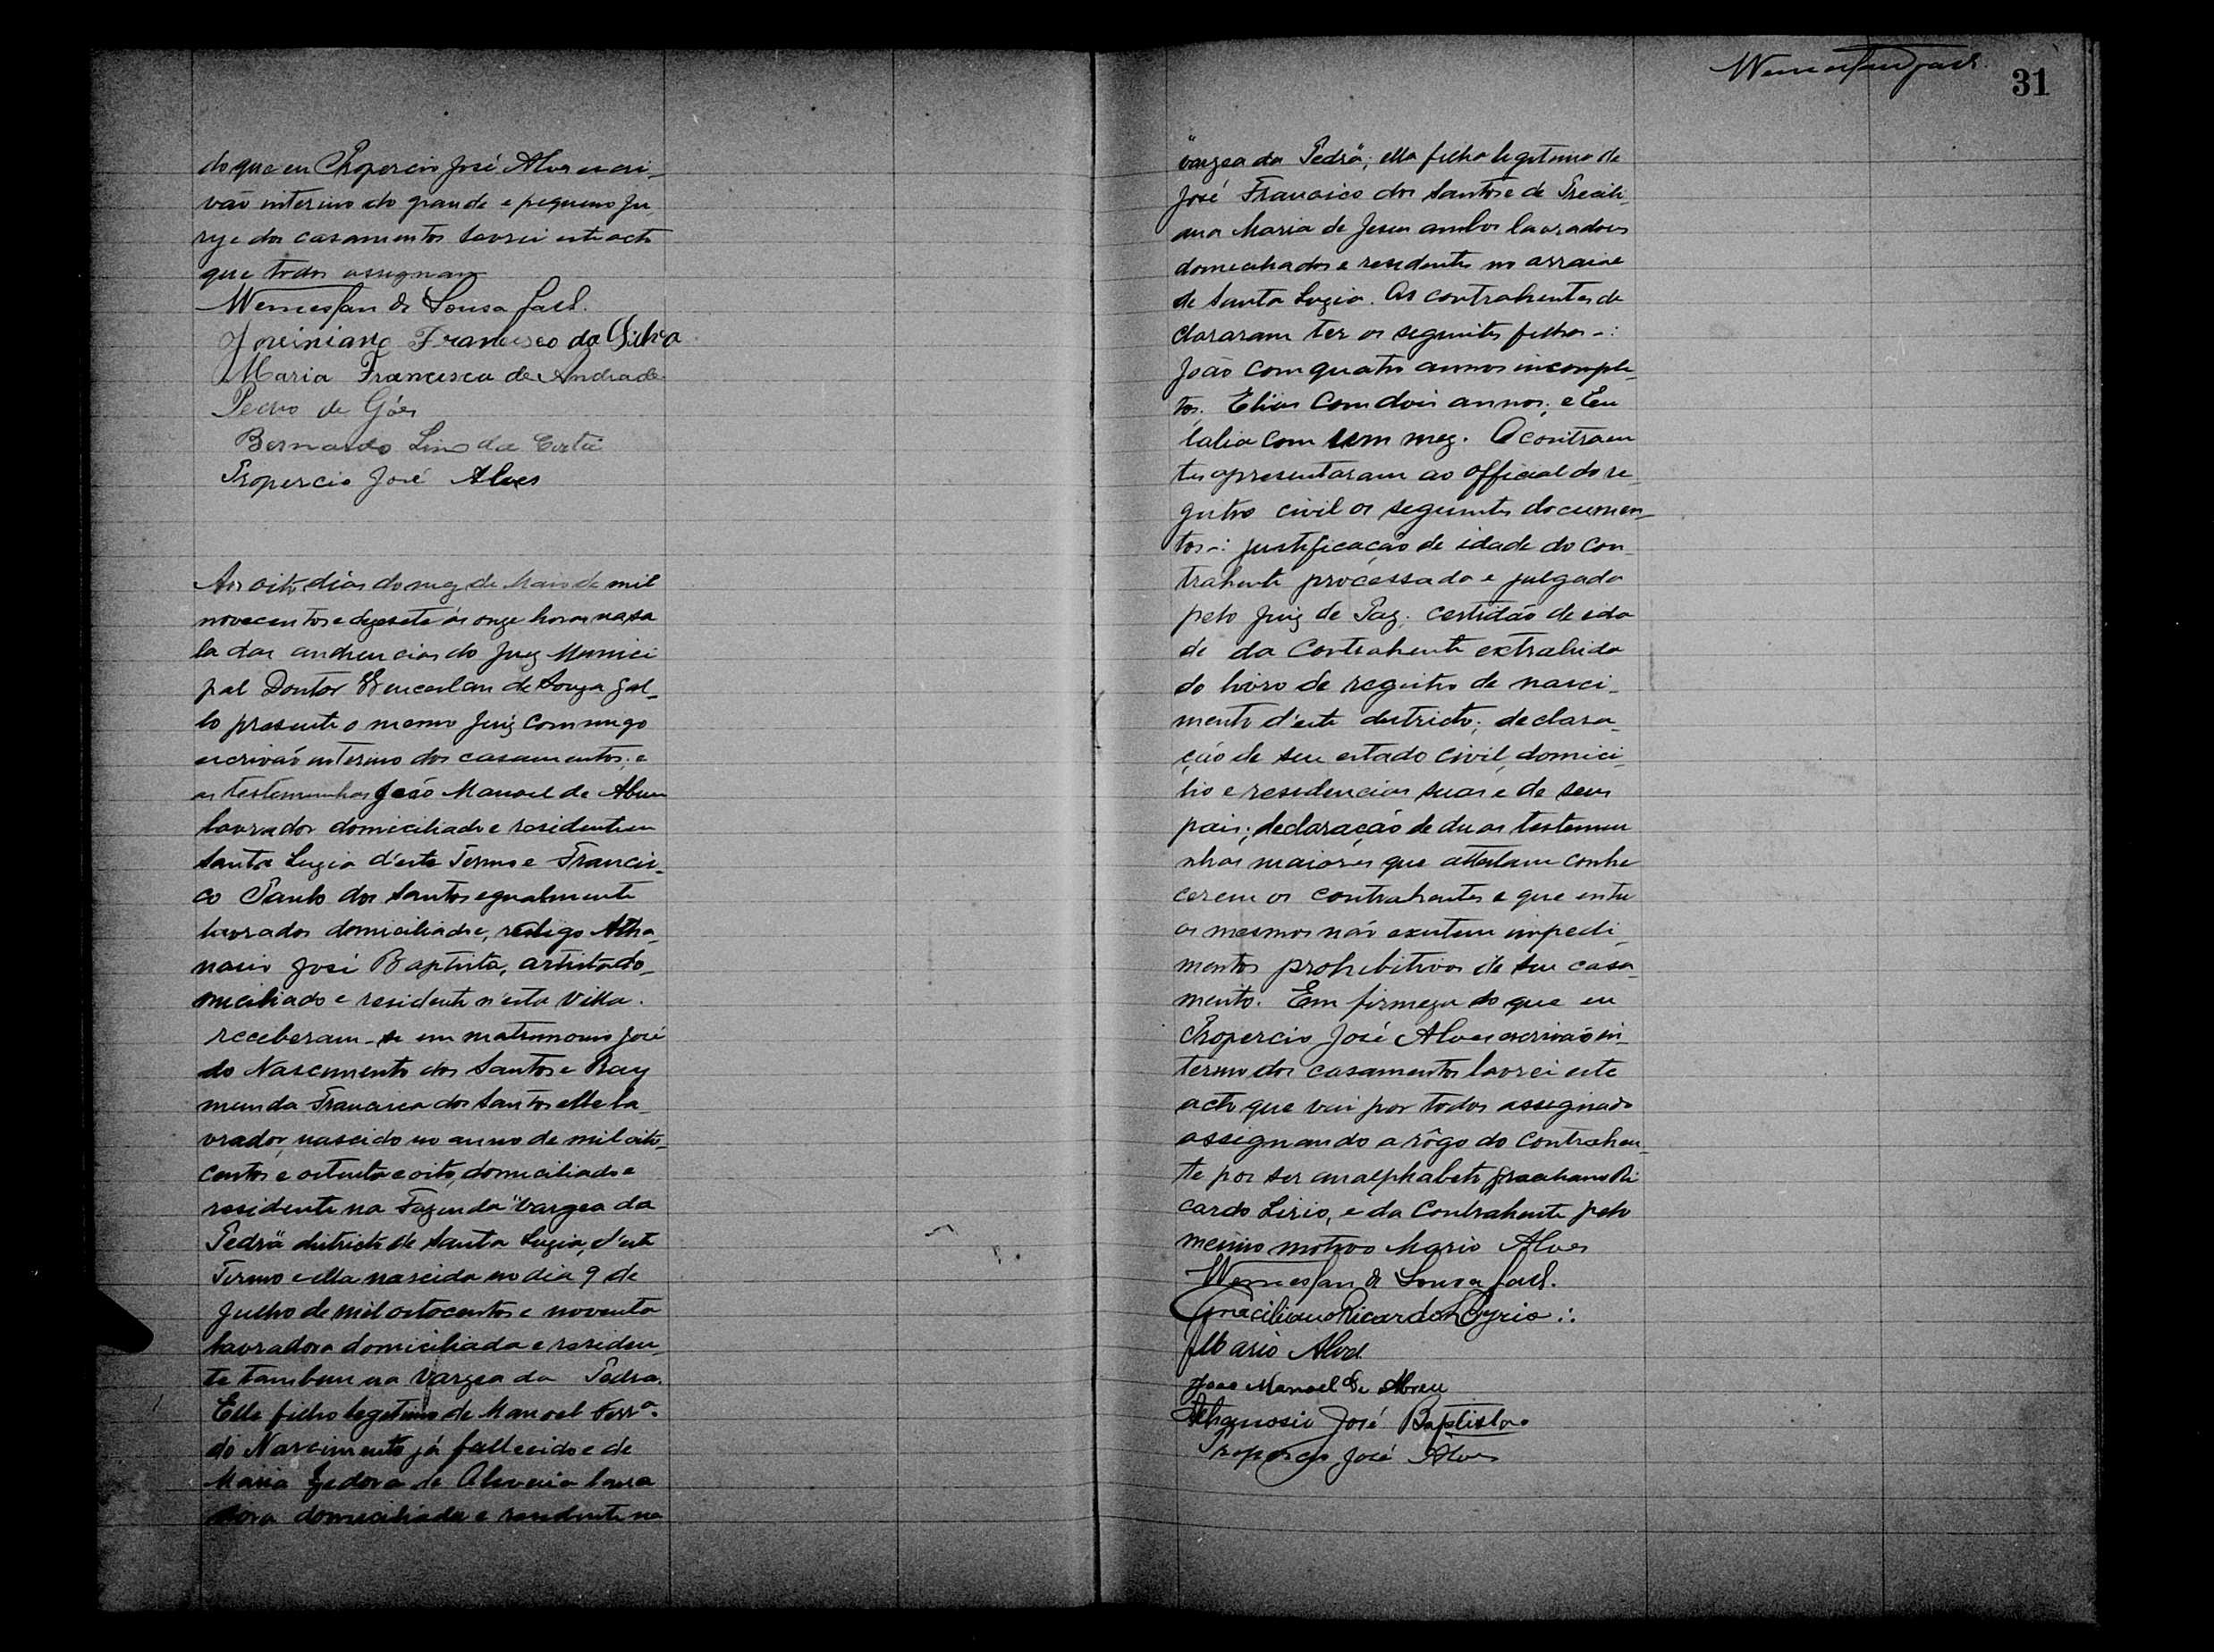 do que eu Propercio José Alves escri-
vão interino do grande e pequeno Ju-
ry e dos casamentos lavrei este acto
que todos assignam
Wenceslau de Sousa Gall.
Francisco da Silva
Maria Francisca de Andrade
Pedro de Góes
Bernardo Lino da Costa
Propercio José Alves
Aos oito dias do mez de Maio de mil
novecentos e dezesete ás onze horas na sa
la das audiencias do Juiz Munici
pal Doutor Wenceslau de Souza Gal-
lo presente o mesmo Juiz commigo
escrivão interino dos casamentos e
as testemunhas João Manoel de Abreu
lavrador domiciliado e residente em
Santa Luzia d'este Termo e Francis-
co Paulo dos Santos egualmente
lavrador domiciliado e, redigo Atha-
nasio José Baptista, artista do-
miciliado e residente n'esta Villa.
receberam-se em matrimonio José
do Nascimento dos Santos e Ray
munda Francisca dos Santos elle la-
vrador, nascido no anno de mil oito-
centos e oitenta e oito, domiciliado e
residente na Fazenda "Vargea da
Pedra" districto de Santa Luzia, d'este
Termo e ella nascida no dia 9 de
Julho de mil oitocentos e noventa
lavradora domiciliada e residen-
te tambem na Vargea da Pedra.
Elle filho legitimo de Manoel Ferrª.
do Nascimento já fallecido e de
Maria de Oliveira lavra
dora domiciliada e residente na
Wenceslau Gall. 31
"Vargea da Pedra"; ella filha legitima de
José Francisco dos Santos e de Precili-
ana Maria de Jesus ambos lavradores
domeciliados e residentes no arraial
de Santa Luzia. Os contrahentes de
clararam ter os seguintes filhos -:
João com quatro annos incomple-
tos. Elias com dois annos; e Eu
lalia com um mez. O contraen
tes apresentaram ao official do re-
gistro civil os seguintes documen-
tos -: justificação de idade do con-
trahente processada e julgada
pelo Juiz de Paz; certidão de eda
de da Contrahente extrahida
do livro de registro de nasci-
mento d'este districto; declara-
ção de seu estado civil, domici-
lio e residencias suas e de seus
pais; declaração de duas testemu
nhas maiores que attestam conhe
cerem os contrahentes e que entre
os mesmos não existem impedi-
mentos prohibitivos de seu casa-
mento. Em firmeza do que eu
Propercio José Alves escrivão in-
terino dos casamentos lavrei este
acto que vai por todos assignado
assignando a rôgo do Contrahen-
te por ser analphabeto Graciliano Ri
cardo Lirio, e da Contrahente pelo
mesmo motivo Mario Alves
Wenceslau de Sousa Gall.
Graciliano Ricardo Lyrio ∴
Mario Alves
Joao Manoel de Abreu
Athanosio José Baptista
Propercio José Alves